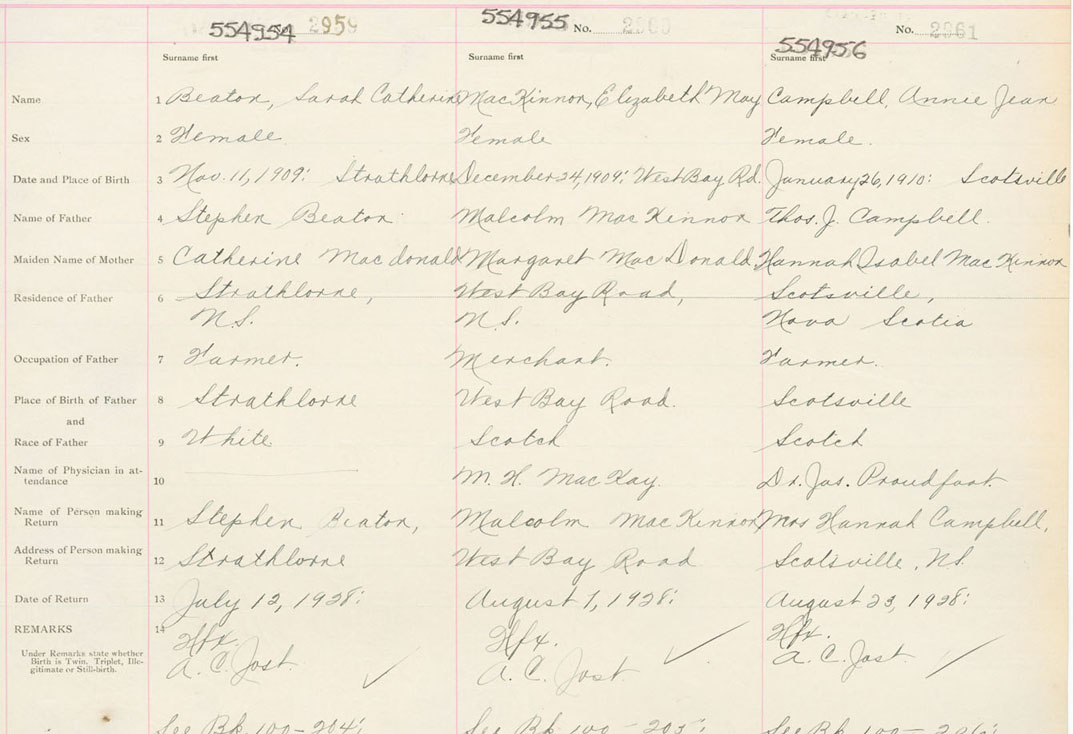 554954 2959 554955 No. 2960 No. 2961
554956
Surname first Surname first Surname first
Name 1 Beaton, Sarah Catherine MacKinnon, Elizabeth May Campbell, Annie Jean
Sex 2 Female Female Female.
Date and Place of Birth 3 Nov. 11, 1909: Strathlorne December 24, 1909: West Bay Rd. January 26, 1910: Scotsville
Name of Father 4 Stephen Beaton Malcolm MacKinnon Thos. J. Campbell.
Maiden Name of Mother 5 Catherine Macdonald Margaret MacDonald Hannah Isabel MacKinnon
Residence of Father 6 Strathlorne, West Bay Road, Scotsville,
N.S. N.S. Nova Scotia
Occupation of Father 7 Farmer. Merchant. Farmer.
Place of Birth of Father 8 Strathlorne West Bay Road. Scotsville
and
Race of Father 9 White Scotch Scotch
Name of Physician in at-
tendance 10 M. H. MacKay. Dr. Jas. Proudfoot.
Name of Person making
Return 11 Stephen Beaton, Malcolm MacKinnon Mrs Hannah Campbell,
Address of Person making
Return 12 Strathlorne West Bay Road Scotsville, N.S.
Date of Return 13 July 12, 1928: August 1, 1928: August 23, 1928:
REMARKS 14 Hfx. Hfx. Hfx.
Under Remarks state whether
Birth is Twin, Triplet, Ille-
gitimate or Still-birth.
A. C. Jost. A. C. Jost. A. C. Jost.
See Bk. 100-204: See Bk. 100-205: See Bk. 100-206: